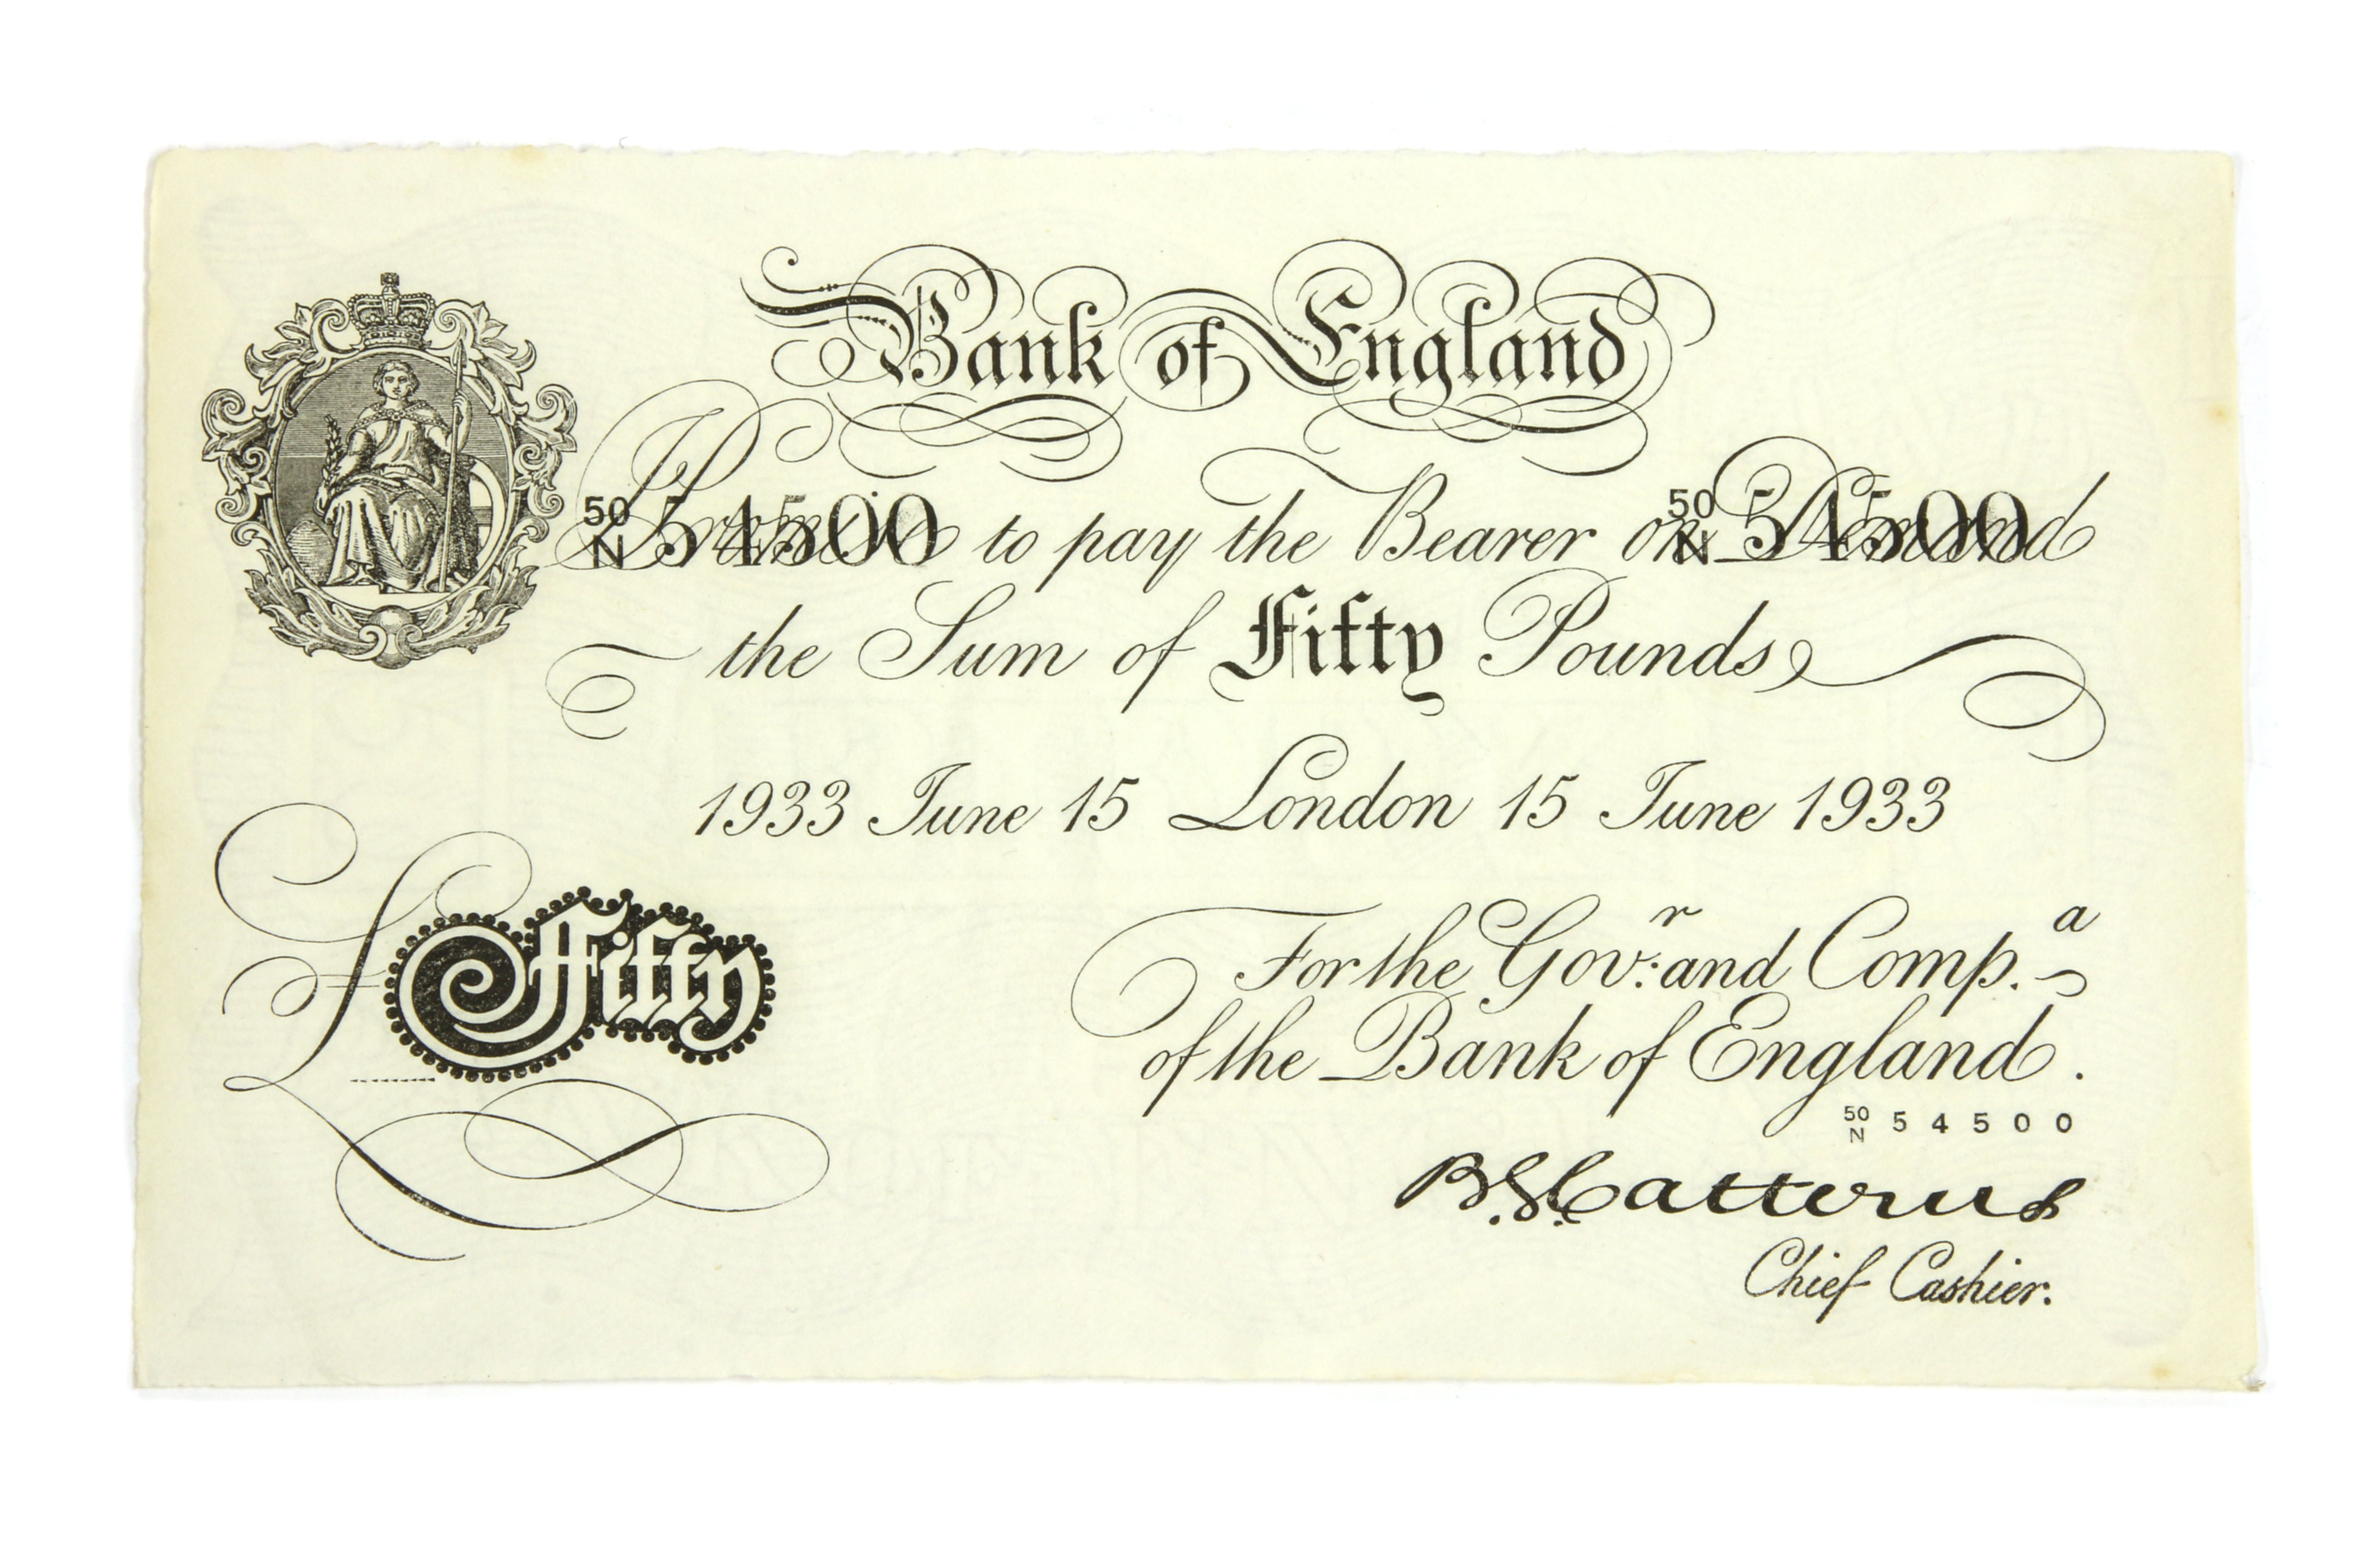 Bank of England
50/N 54500 50/N 54500
Promise to pay the Bearer on Demand
the Sum of Fifty Pounds
1933 June 15 London 15 June 1933
£Fifty
For the Gov:r and Comp.a
of the Bank of England.
50/N 54500
B.G.Catterns
Chief Cashier.